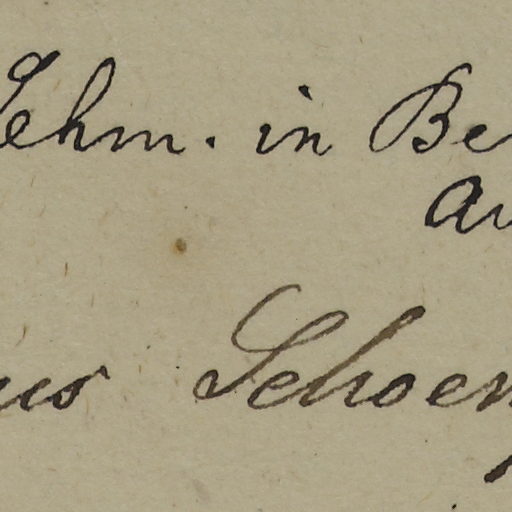 Schm. in Be
au
us Schoen